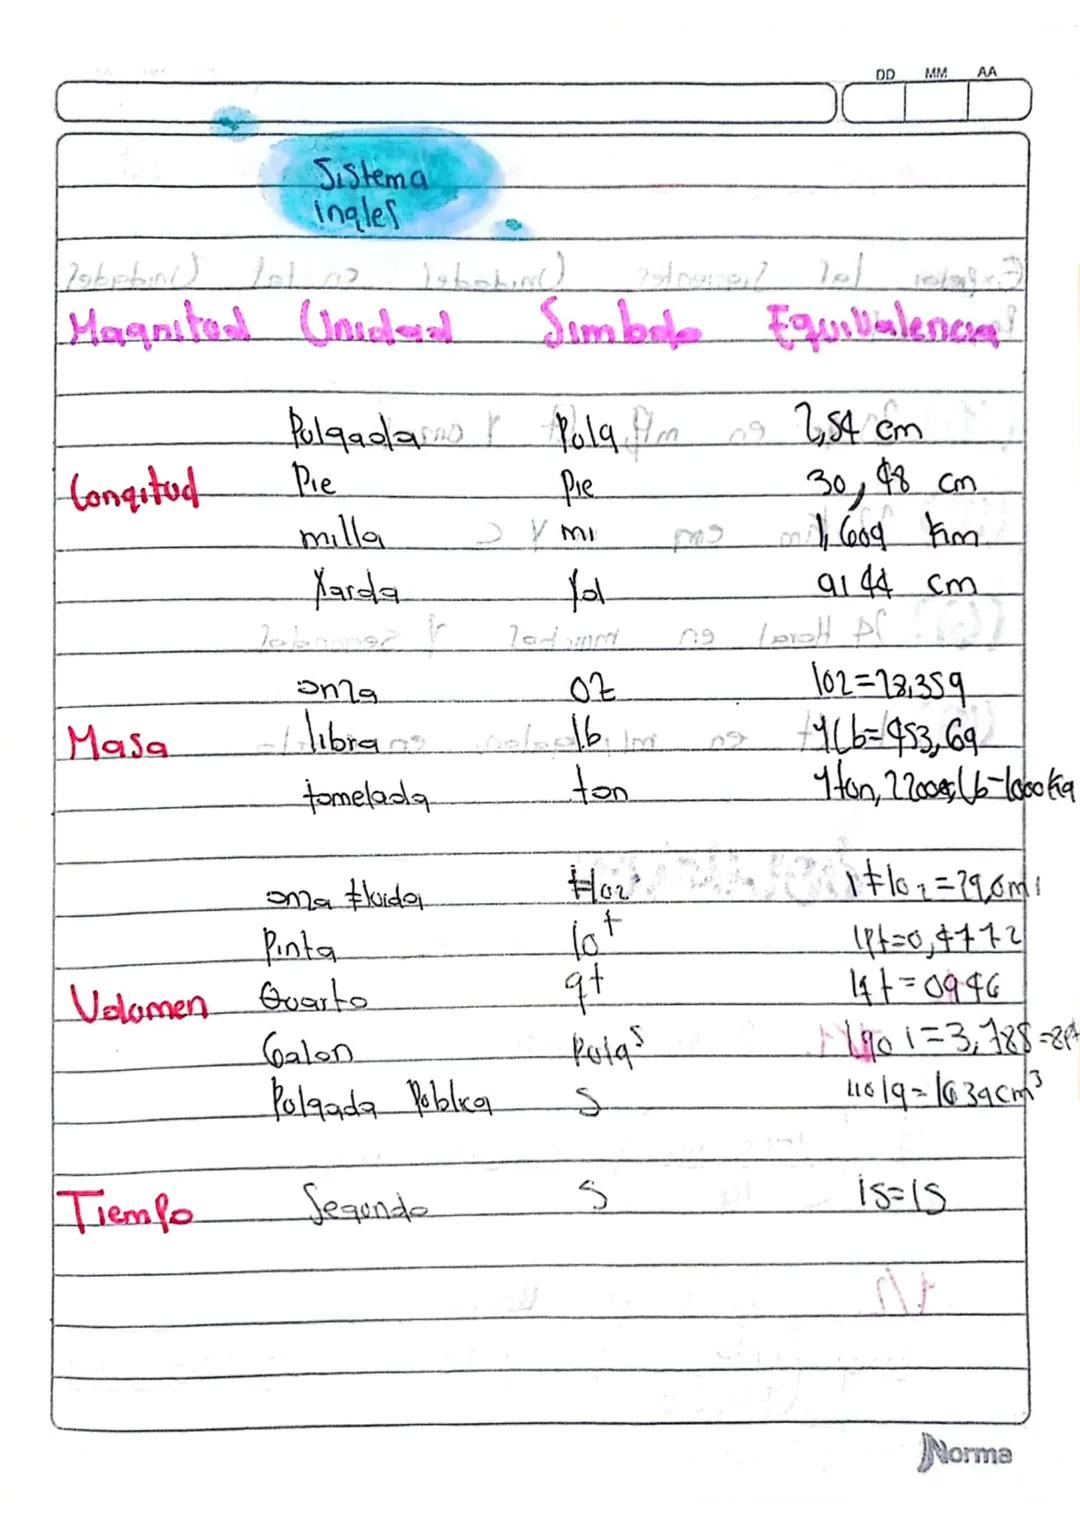 DD MM AA
Sistema
ingles
Magnitud Unidad Simbolo Equivalencia
Pulgada Pulg 2,54 cm
Longitud Pie Pie 30,48 cm
milla mi 1,609 km
Yarda Yd 91 44 cm
onza oz 1oz=28,35g
Masa libra lb 1Lb=453,6g
tomelada ton 1ton, 2200 Lb-1000kg
onza fluida floz 1 floz=29,6ml
Pinta 1Pt=0,4732
Volumen Quarto qt 1qt=0946
Galon Pulg 1gol=3,785=8Pt
Pulgada Publica S =1639cm³
Tiempo Segundo S 1S=1S
Norma